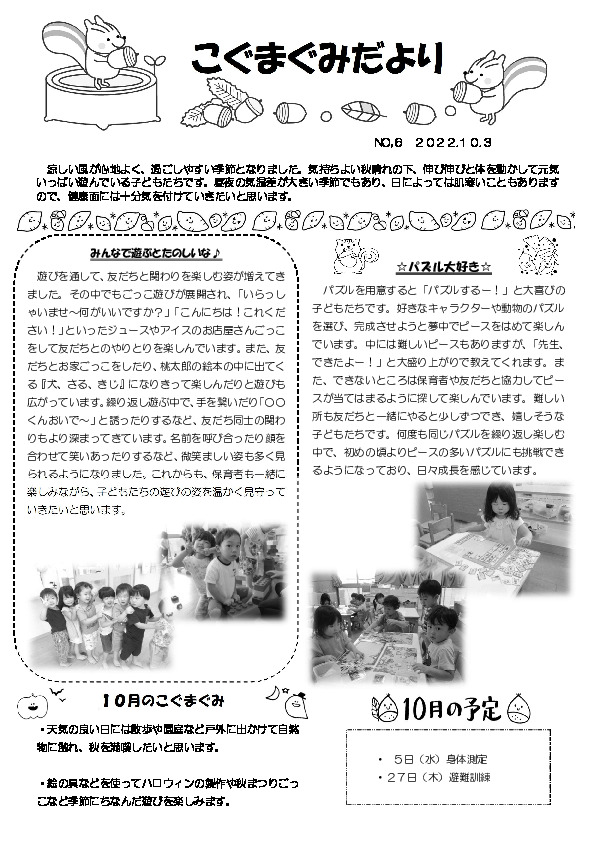 こぐまぐみだより
NO,6　２０２２.１０.３
涼しい風が心地よく、過ごしやすい季節となりました。気持ちよい秋晴れの下、伸び伸びと体を動かして元気
いっぱい遊んでいる子どもたちです。昼夜の気温差が大きい季節でもあり、日によっては肌寒いこともあります
ので、健康面には十分気を付けていきたいと思います。
みんなで遊ぶとたのしいな♪
遊びを通して、友だちと関わりを楽しむ姿が増えてき
ました。その中でもごっこ遊びが展開され、「いらっし
ゃいませ～何がいいですか？」「こんにちは！これくだ
さい！」といったジュースやアイスのお店屋さんごっこ
をして友だちとのやりとりを楽しんでいます。また、友
だちとお家ごっこをしたり、桃太郎の絵本の中に出てく
る『犬、さる、きじ』になりきって楽しんだりと遊びも
広がっています。繰り返し遊ぶ中で、手を繋いだり「〇〇
くんおいで～」と誘ったりするなど、友だち同士の関わ
りもより深まってきています。名前を呼び合ったり顔を
合わせて笑いあったりするなど、微笑ましい姿も多く見
られるようになりました。これからも、保育者も一緒に
楽しみながら、子どもたちの遊びの姿を温かく見守って
いきたいと思います。
☆パズル大好き☆
パズルを用意すると「パズルするー！」と大喜びの
子どもたちです。好きなキャラクターや動物のパズル
を選び、完成させようと夢中でピースをはめて楽しん
でいます。中には難しいピースもありますが、「先生、
できたよー！」と大盛り上がりで教えてくれます。ま
た、できないところは保育者や友だちと協力してピー
スが当てはまるように探して楽しんでいます。難しい
所も友だちと一緒にやると少しずつでき、嬉しそうな
子どもたちです。何度も同じパズルを繰り返し楽しむ
中で、初めの頃よりピースの多いパズルにも挑戦でき
るようになっており、日々成長を感じています。
１０月のこぐまぐみ
・天気の良い日には散歩や園庭など戸外に出かけて自然
物に触れ、秋を満喫したいと思います。
・絵の具などを使ってハロウィンの製作や秋まつりごっ
こなど季節にちなんだ遊びを楽しみます。
10月の予定
・　５日（水）身体測定
・２７日（木）避難訓練